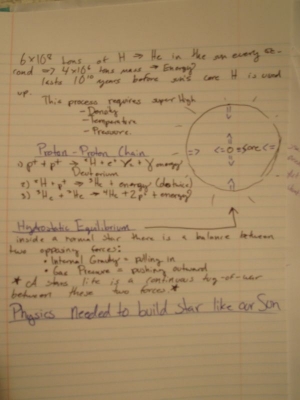 6 x 10⁸ tons of H → He in the sun every se-
cond => 4x10⁶ tons mass → Energy?
lasts 10¹⁰ years before sun's core H is used
up.
This process requires super High
- Density
- Temperature
- Pressure.
Proton-Proton Chain
1) p⁺ + p⁺ → ²H + e⁺ + energy
Deuterium
2) ²H + p⁺ → ³He + energy
3) ³He + ³He → ⁴He + 2p⁺ + energy
Hydrostatic Equilibrium
inside a normal star there is a balance between
two opposing forces:
• Internal Gravity = pulling in
• Gas Pressure = pushing outward
* A stars life is a continuous tug-of-war
between these two forces *
Physics needed to build star like our Sun